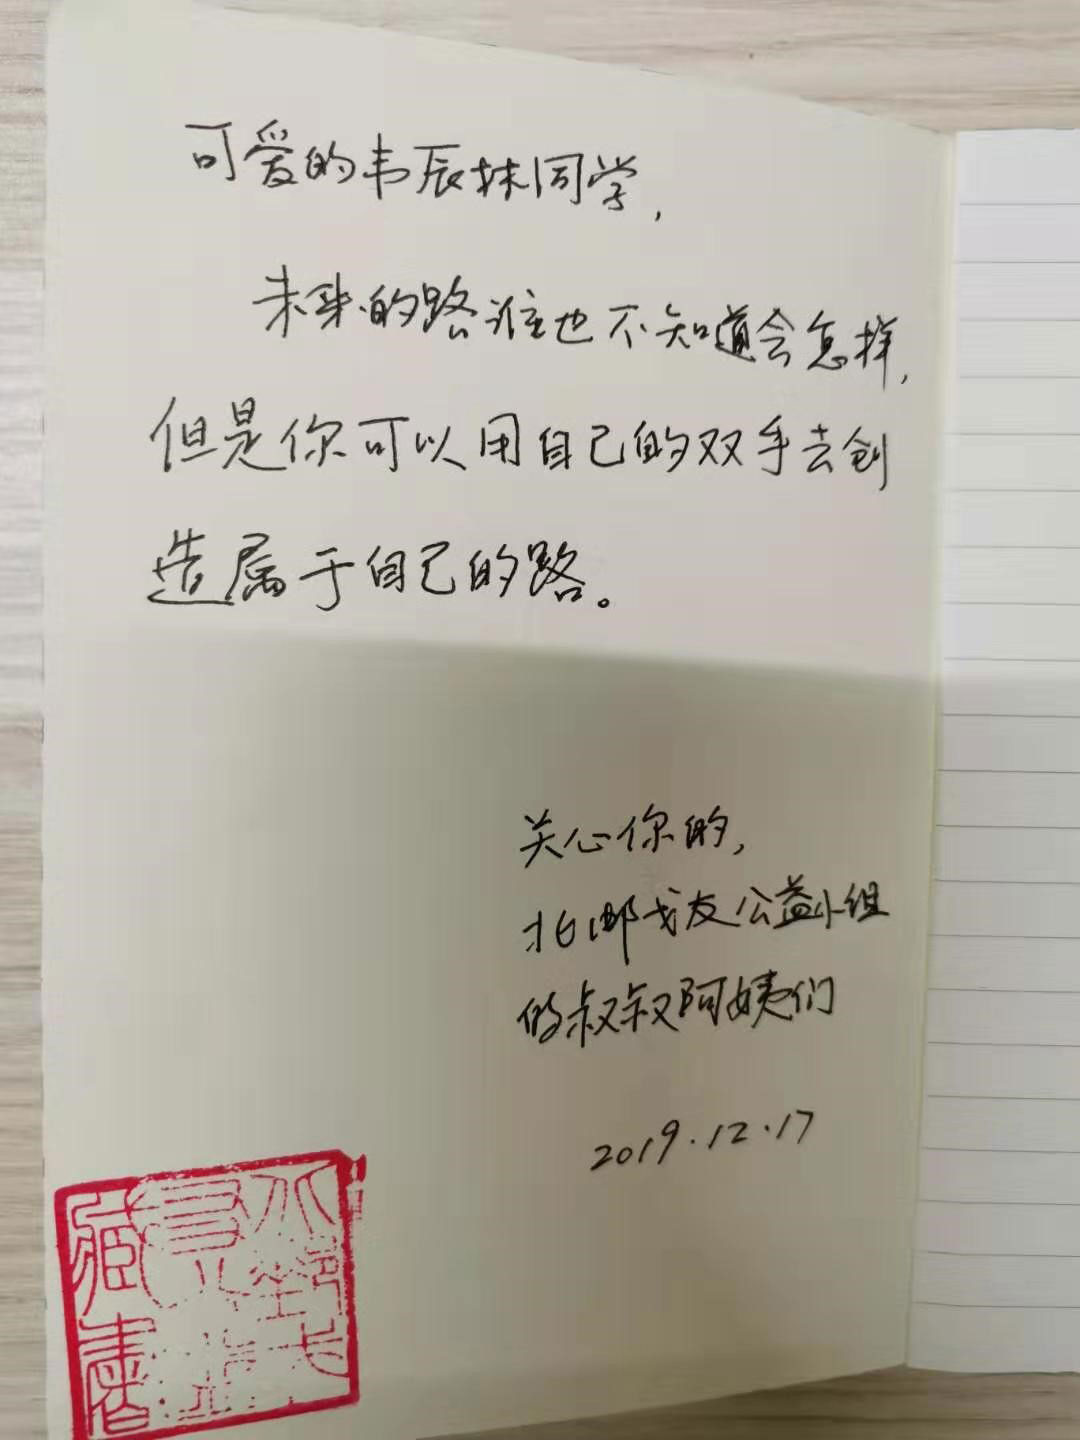 可爱的韦辰林同学,
未来的路谁也不知道会怎样,
但是你可以用自己的双手去创
造属于自己的路。
关心你的,
北邮戈友公益小组
的叔叔阿姨们
2019.12.17
北邮戈
友
藏书